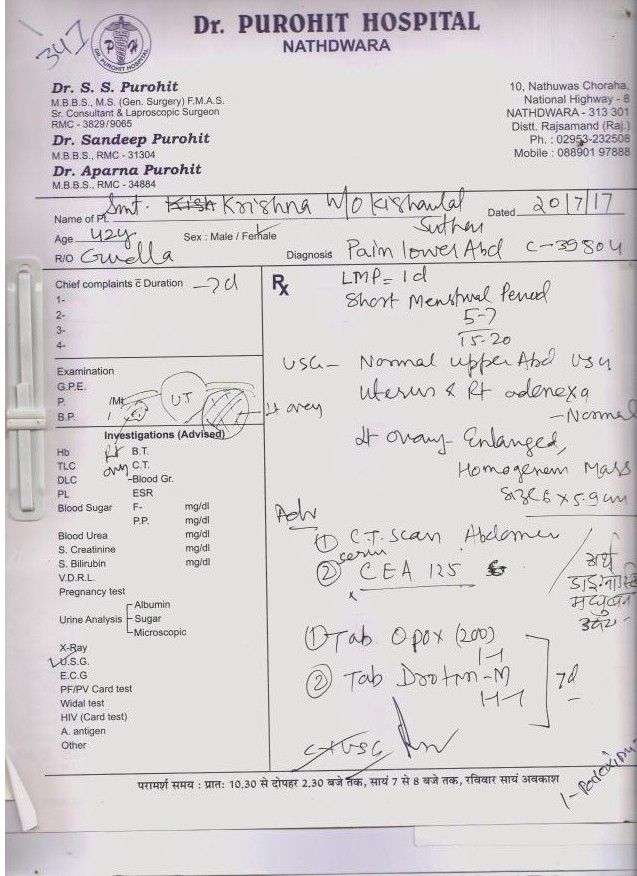 347
Dr. PUROHIT HOSPITAL
NATHDWARA
P H
DR. PUROHIT HOSPITAL
Dr. S. S. Purohit
M.B.B.S., M.S. (Gen. Surgery) F.M.A.S.
Sr. Consultant & Laproscopic Surgeon
RMC - 3829/9065
Dr. Sandeep Purohit
M.B.B.S., RMC - 31304
Dr. Aparna Purohit
M.B.B.S., RMC - 34884
10, Nathuwas Choraha,
National Highway - 8
NATHDWARA - 313 301
Distt. Rajsamand (Raj.)
Ph. : 02953-232508
Mobile : 088901 97888
Name of Pt. Smt. Krishna W/o Kishanlal Dated 20/7/17
Suthar
Age 42y Sex : Male / Female
R/O Gudla Diagnosis Pain lower Abd C-39804
Chief complaints c̄ Duration
1-
2-
3-
4-
Rx
LMP= 1d
Short Menstrual Period
5-7
15-20
USG- Normal upper Abd USG
Uterus & Rt adenexa
-Normal
Lt ovary- Enlarged,
Homogenem Mass
size 6 x 5.9 cm
Examination
G.P.E.
P. /Mt
B.P. /
UT
Lt ovary
Investigations (Advised)
Hb B.T.
TLC C.T.
DLC -Blood Gr.
PL ESR
Blood Sugar F- mg/dl
P.P. mg/dl
Blood Urea mg/dl
S. Creatinine mg/dl
S. Bilirubin mg/dl
V.D.R.L.
Pregnancy test
Urine Analysis Albumin
Sugar
Microscopic
X-Ray
U.S.G.
E.C.G
PF/PV Card test
Widal test
HIV (Card test)
A. antigen
Other
Adv
① C.T. Scan Abdomen
serum
② CEA 125
① Tab Opox (200)
1-1
② Tab Drotin-M
1-1-1
7d
परामर्श समय : प्रातः 10.30 से दोपहर 2.30 बजे तक, सायं 7 से 8 बजे तक, रविवार सायं अवकाश